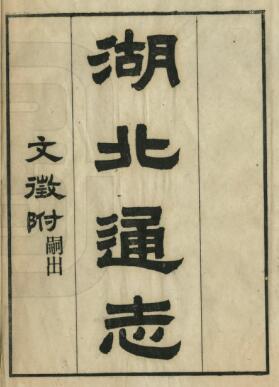 湖北通志
文徵附嗣出